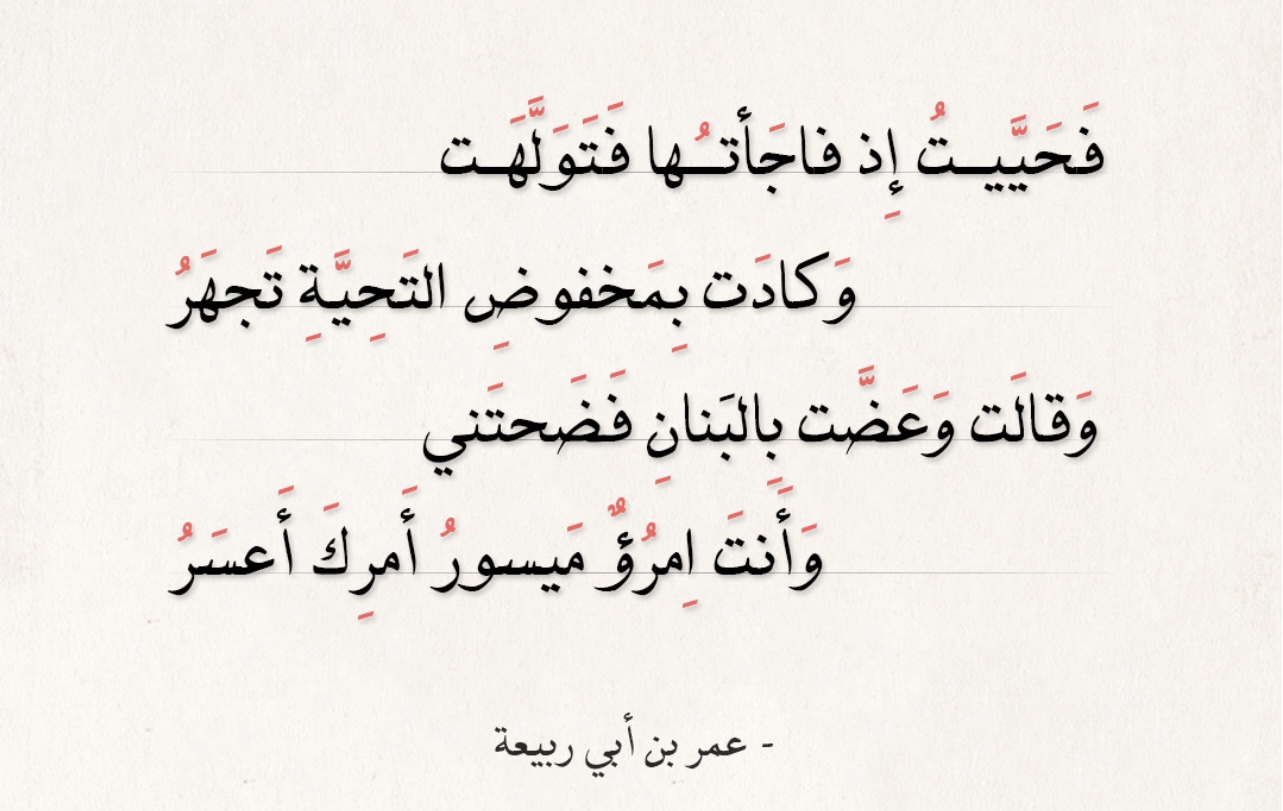 فَحَيَّيـتُ إِذ فاجَأتـُها فَتَوَلَّهَـت
وَكادَت بِمَخفوضِ التَحِيَّةِ تَجهَرُ
وَقالَت وَعَضَّت بِالبَنانِ فَضَحتَني
وَأَنتَ اِمرُؤٌ مَيسورُ أَمرِكَ أَعسَرُ
- عمر بن أبي ربيعة